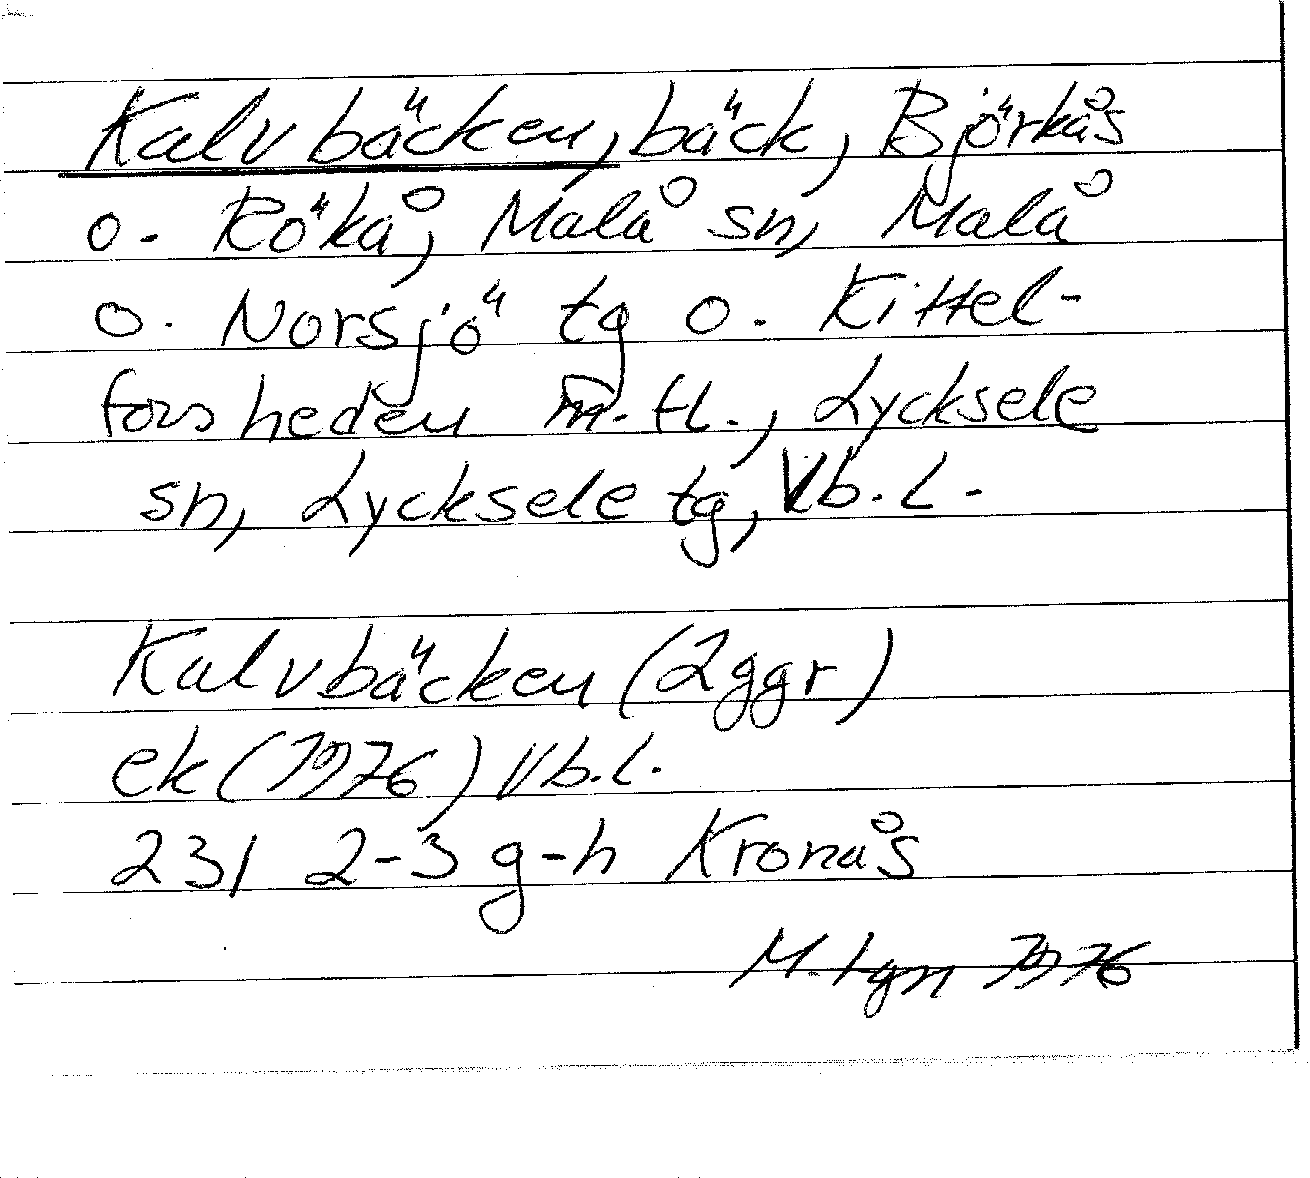 Kalvbäcken, bäck, Björkås
o. Rökå, Malå sn, Malå
o. Norsjö tg o. Kittel-
forsheden m.fl., Lycksele
sn, Lycksele tg, Vb.l.
Kalvbäcken (2ggr)
ek (1976) Vb.l.
231 2-3 g-h Kronås
M. 1976